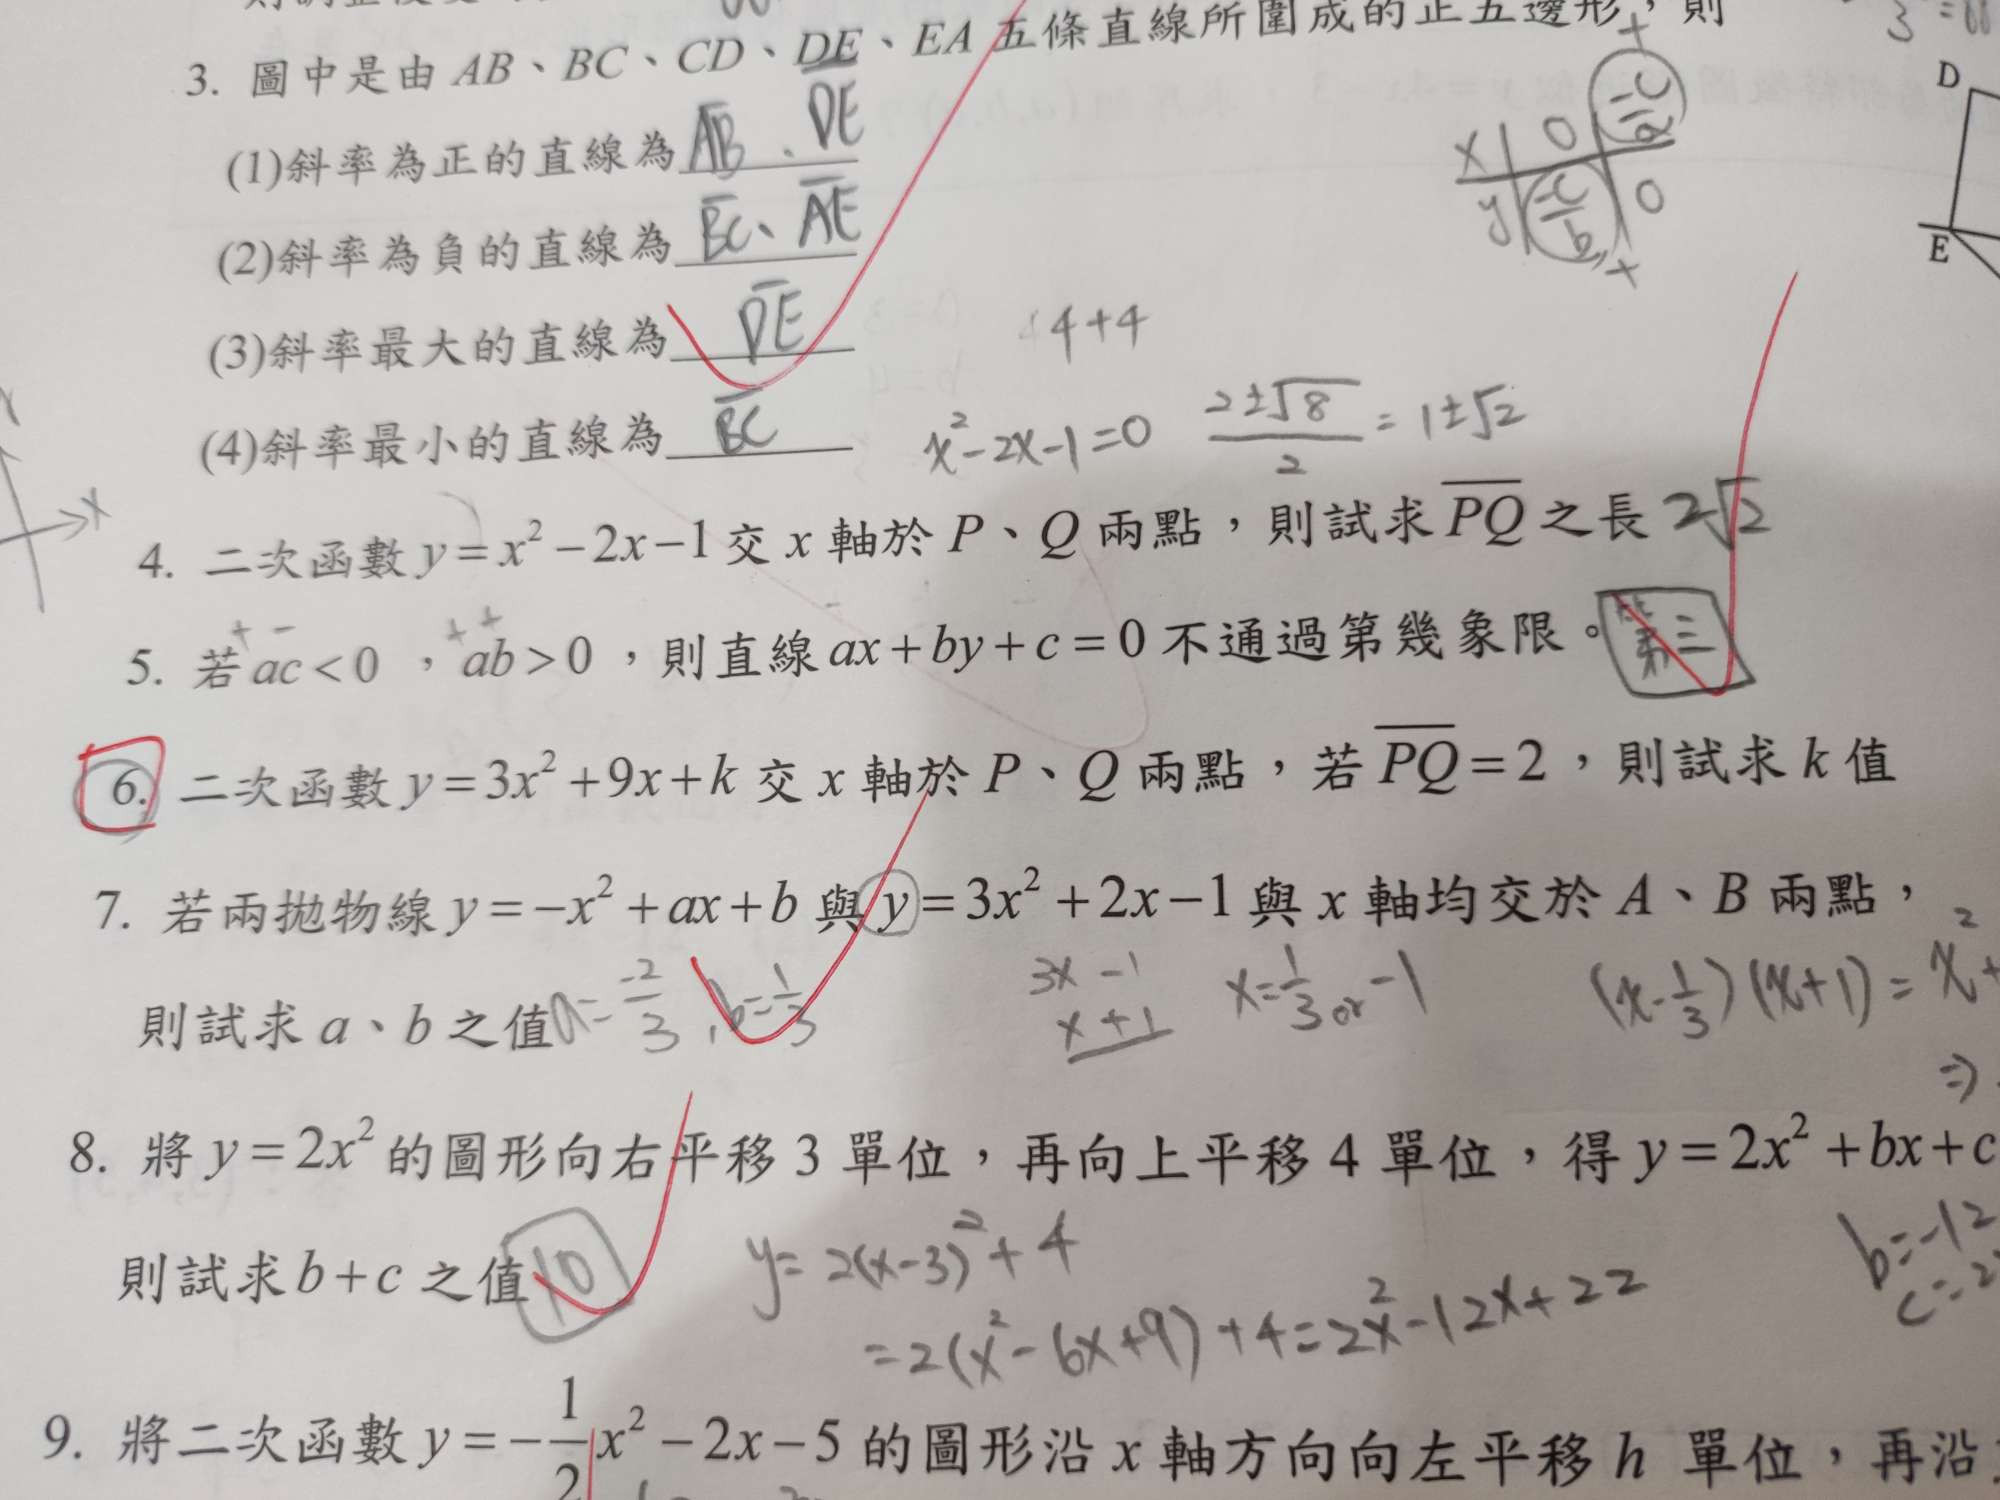 3. 圖中是由 AB、BC、CD、DE、EA 五條直線所圍成的正五邊形，則
(1)斜率為正的直線為 AB、DE
(2)斜率為負的直線為 BC、AE
(3)斜率最大的直線為 DE
(4)斜率最小的直線為 BC
x 0 -c/a
y -c/b 0
+
+
D
E
x
4+4
x²-2x-1=0 (2±√8)/2 = 1±√2
4. 二次函數 y = x² − 2x − 1 交 x 軸於 P、Q 兩點，則試求 PQ 之長 2√2
+ − + +
5. 若 ac < 0 ，ab > 0 ，則直線 ax + by + c = 0 不通過第幾象限。第三
6. 二次函數 y = 3x² + 9x + k 交 x 軸於 P、Q 兩點，若 PQ = 2，則試求 k 值
7. 若兩拋物線 y = −x² + ax + b 與 y = 3x² + 2x − 1 與 x 軸均交於 A、B 兩點，
則試求 a、b 之值 a=-2/3, b=1/3
3x -1
x +1
x=1/3 or -1
(x-1/3)(x+1)= x²+
⇒
8. 將 y = 2x² 的圖形向右平移 3 單位，再向上平移 4 單位，得 y = 2x² + bx + c
則試求 b + c 之值 10
y= 2(x-3)²+4
=2(x²-6x+9)+4=2x²-12x+22
b=-12
9. 將二次函數 y = −1/2 x² − 2x − 5 的圖形沿 x 軸方向向左平移 h 單位，再沿